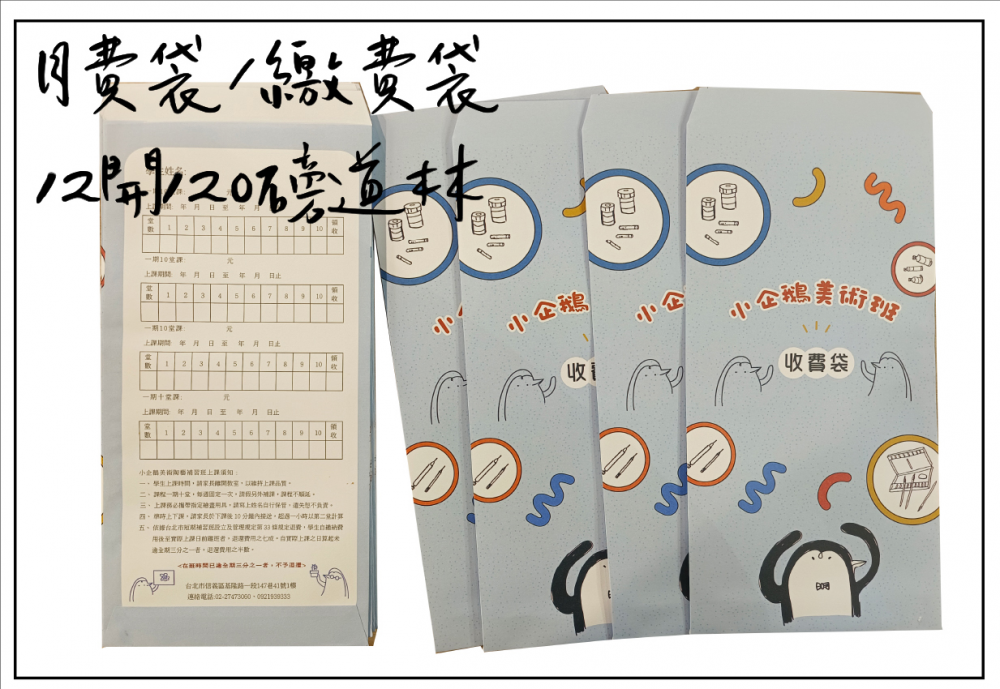 月費袋/繳費袋
12開120磅道林
學生姓名:
上課期間: 年 月 日 至 年 月
堂數 1 2 3 4 5 6 7 8 9 10 簽收
一期10堂課: 元
上課期間: 年 月 日 至 年 月 日止
堂數 1 2 3 4 5 6 7 8 9 10 簽收
一期10堂課: 元
上課期間: 年 月 日 至 年 月 日止
堂數 1 2 3 4 5 6 7 8 9 10 簽收
一期十堂課: 元
上課期間: 年 月 日 至 年 月 日止
堂數 1 2 3 4 5 6 7 8 9 10 簽收
小企鵝美術陶藝補習班上課須知:
一、學生上課時間,請家長離開教室,以維持上課品質。
二、課程一期十堂,每週固定一次,請假另外補課,課程不順延。
三、上課務必攜帶指定繪畫用具,請寫上姓名自行保管,遺失恕不負責。
四、準時上下課,請家長於下課後10分鐘內接送,超過一小時以第二堂計算
五、依據台北市短期補習班設立及管理規定第33條規定退費,學生自繳納費
用後至實際上課日前離班者,退還費用之七成,自實際上課之日算起未
逾全期三分之一者,退還費用之半數。
<在班時間已逾全期三分之一者,不予退還>
台北市信義區基隆路一段147巷41號1樓
連絡電話:02-27475000、0921938333
小企鵝
收費
小企鵝
小企
小企鵝美術班
收費袋